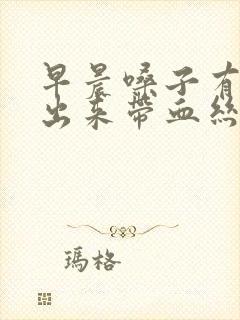 早晨嗓子有
出来带血丝
瑪格